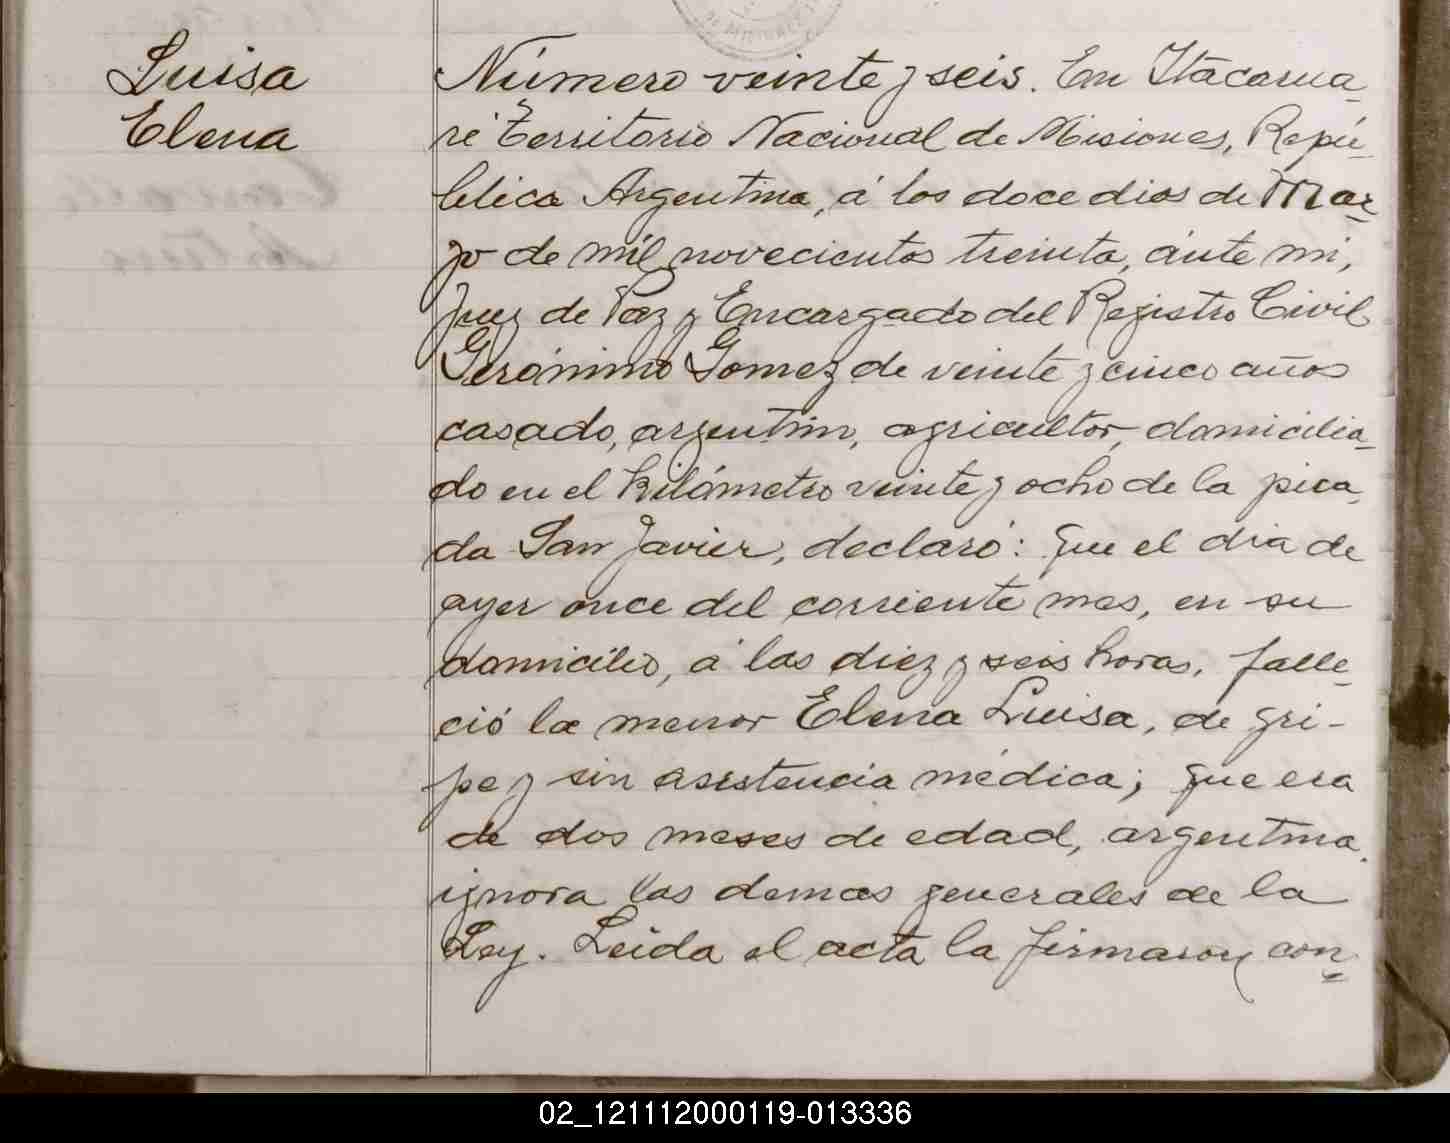 Luisa
Elena
Número veinte y seis. En Itacarua-
ré Territorio Nacional de Misiones, Repú-
blica Argentina, á los doce dias de Mar-
zo de mil novecientos treinta, ánte mi,
Juez de Paz y Encargado del Registro Civil
Gerónimo Gomez de veinte y cinco años
casado, argentin, agricultor, domicilia-
do en el kilómetro veinte y ocho de la pica-
da San Javier, declaró: que el dia de
ayer once del corriente mes, en su
domicilio, á las diez y seis horas, falle-
ció la menor Elena Luisa, de gri-
pe y sin asistencia médica; que era
de dos meses de edad, argentina.
ignora las demas generales de la
Ley. Leida el acta la firmaron con-
02_121112000119-013336